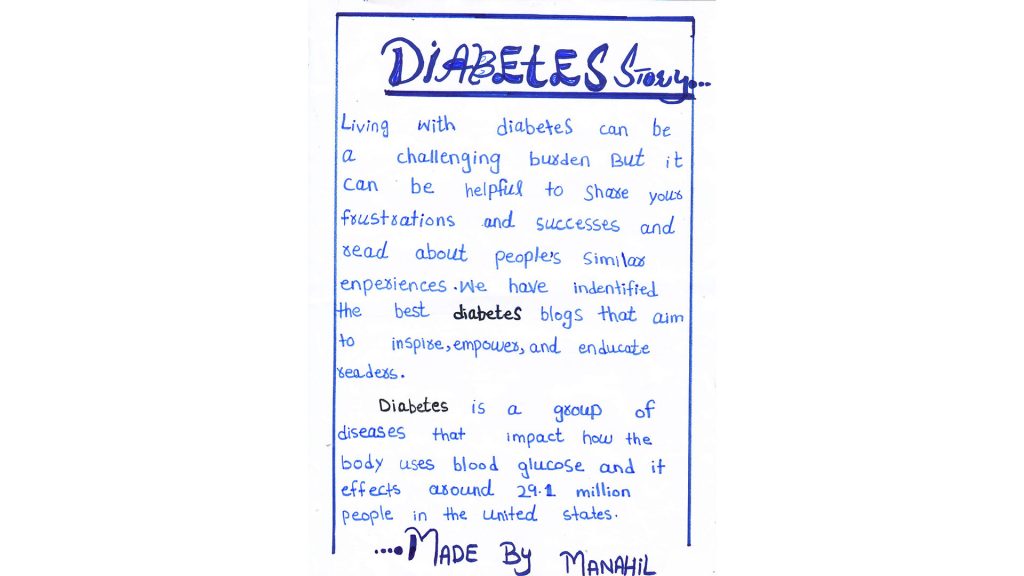 DiABEtES Story...
Living with diabetes can be
a challenging burden But it
can be helpful to share your
frustrations and successes and
read about people's similar
enperiences. We have indentified
the best diabetes blogs that aim
to inspire, empower, and enducate
readers.
Diabetes is a group of
diseases that impact how the
body uses blood glucose and it
effects around 29.1 million
people in the united states.
....MADE By MANAHiL